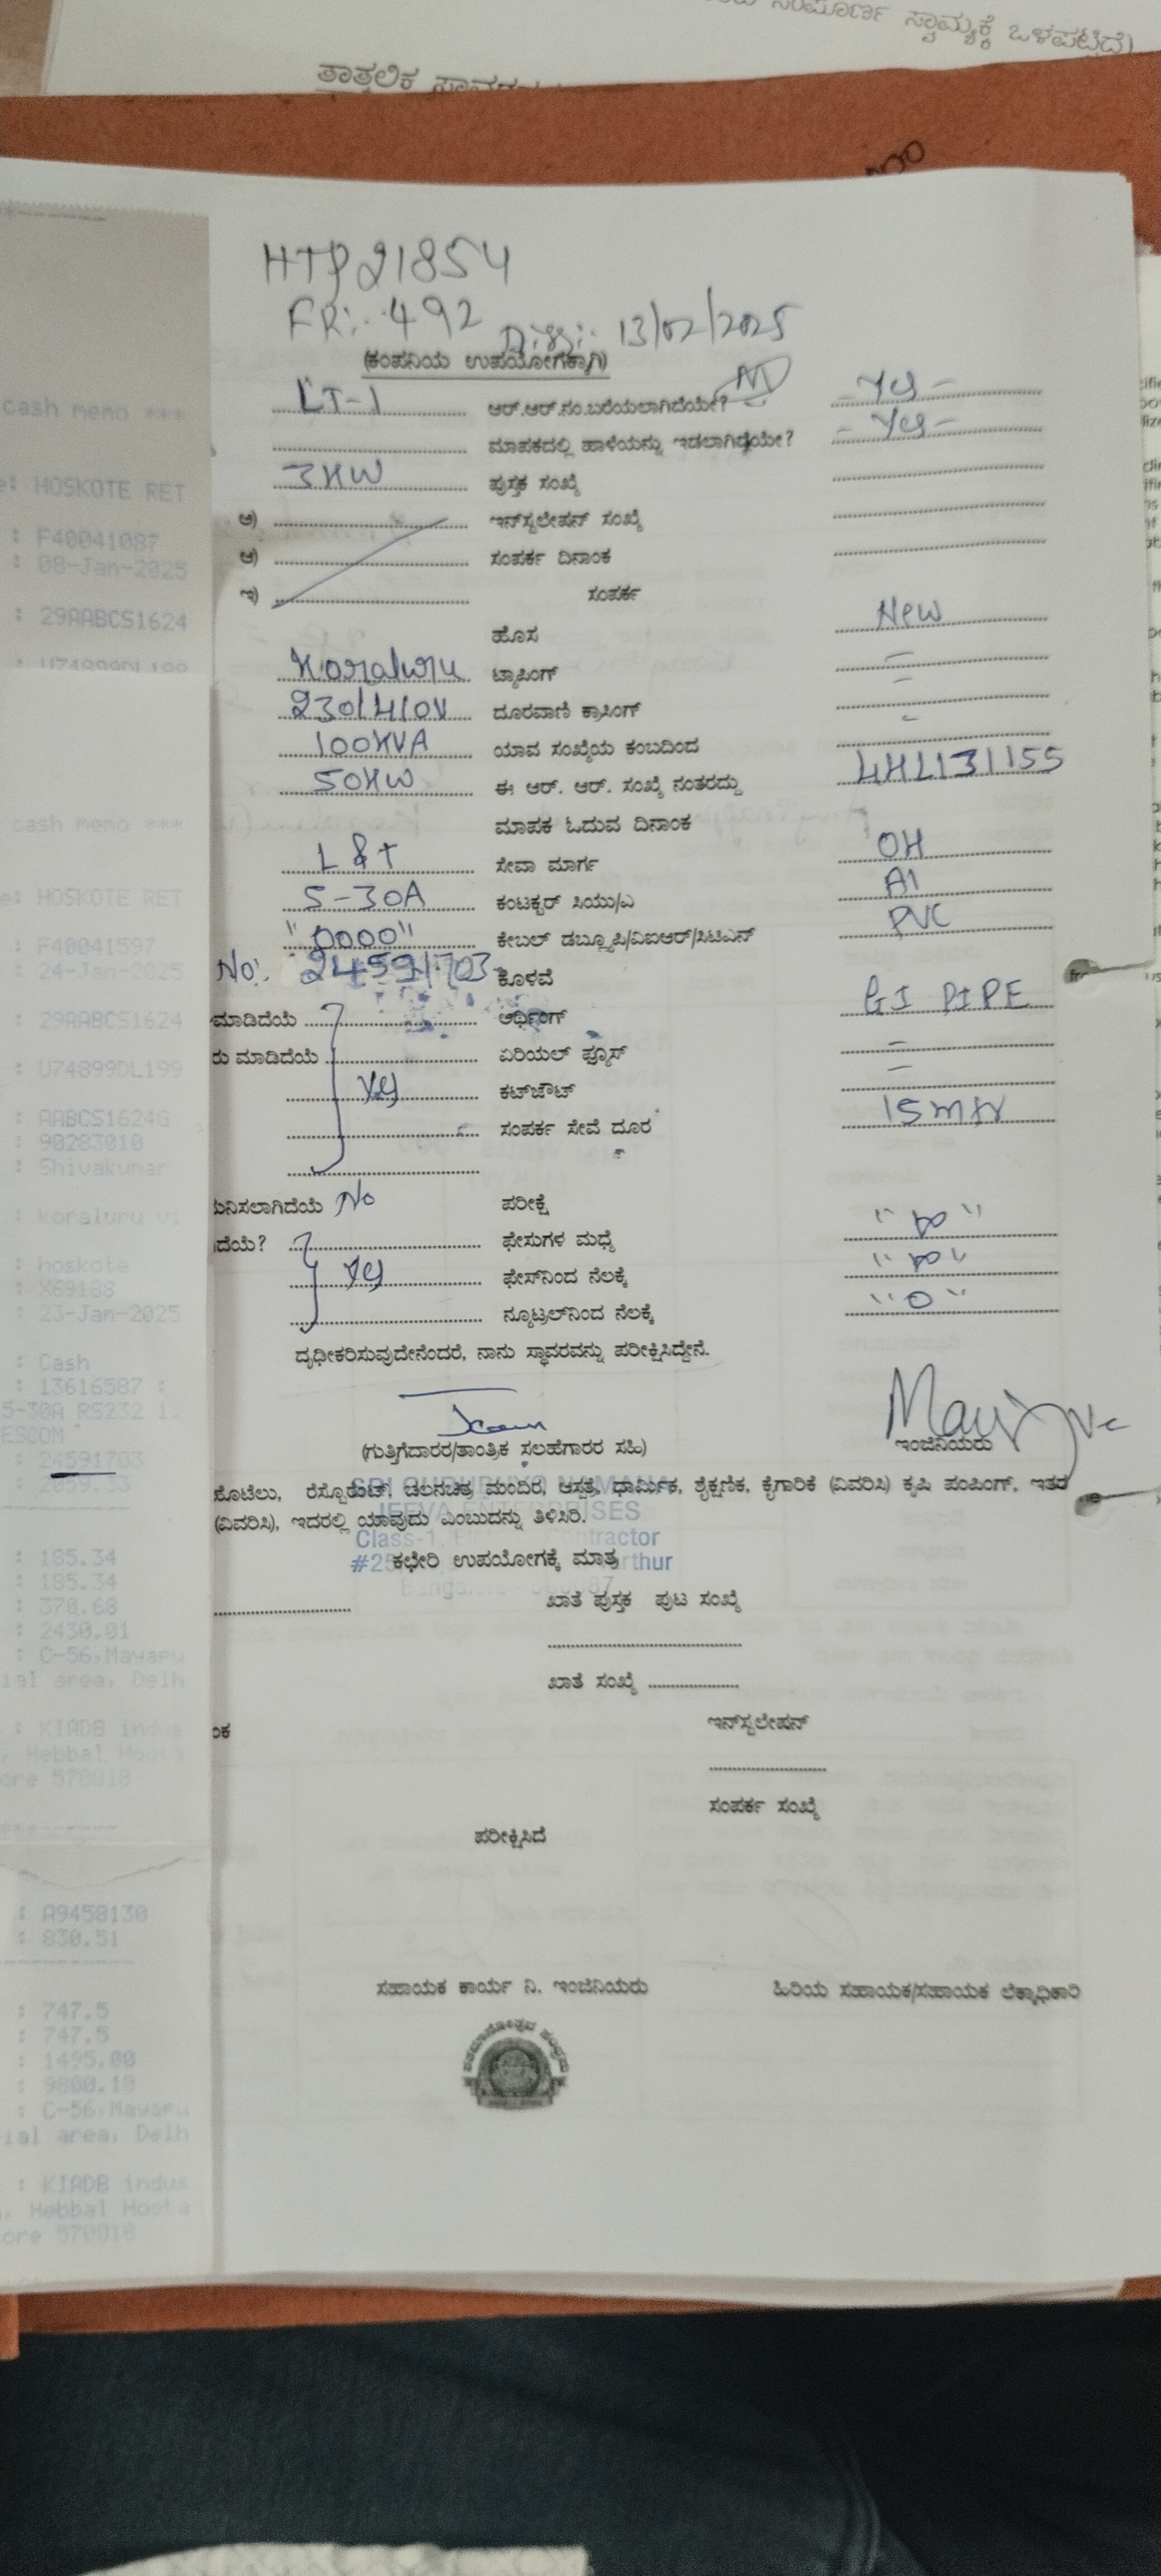 ಸಂಪೂರ್ಣ ಸ್ವಾಮ್ಯಕ್ಕೆ ಒಳಪಟ್ಟಿದೆ)
ತಾತ್ಕಲಿಕ
HTP21854
FR:- 492 13/02/2025
(ಕಂಪನಿಯ ಉಪಯೋಗಕ್ಕಾಗಿ)
LT-1 ಆರ್.ಆರ್.ನಂ.ಬರೆಯಲಾಗಿದೆಯೇ? - Yes -
cash memo ***
ಮಾಪಕದಲ್ಲಿ ಹಾಳೆಯನ್ನು ಇಡಲಾಗಿದೆಯೇ? - Yes -
3KW ಪುಸ್ತಕ ಸಂಖ್ಯೆ
: HOSKOTE RET
ಅ) ಇನ್‌ಸ್ಟಲೇಷನ್ ಸಂಖ್ಯೆ
: F40041087
ಆ) ಸಂಪರ್ಕ ದಿನಾಂಕ
: 08-Jan-2025
ಇ) ಸಂಪರ್ಕ
: 29AABCS1624
ಹೊಸ New
Koraluru ಟ್ಯಾಪಿಂಗ್ =
230/410V ದೂರವಾಣಿ ಕ್ರಾಸಿಂಗ್ -
100KVA ಯಾವ ಸಂಖ್ಯೆಯ ಕಂಬದಿಂದ
50KW ಈ ಆರ್. ಆರ್. ಸಂಖ್ಯೆ ನಂತರದ್ದು 4HL131155
cash memo ***
ಮಾಪಕ ಓದುವ ದಿನಾಂಕ
L&T ಸೇವಾ ಮಾರ್ಗ OH
: HOSKOTE RET
5-30A ಕಂಟಕ್ಟರ್ ಸಿಯು/ಎ Al
: F40041597
"0000" ಕೇಬಲ್ ಡಬ್ಲ್ಯೂಪಿ/ವಿಐಆರ್/ಸಿಟಿಎಸ್ PVC
: 24-Jan-2025
No:. 24591703 ಕೊಳವೆ
: 29AABCS1624
ಮಾಡಿದೆಯೆ ಆರ್ಥಿಂಗ್ GI PIPE
: U74899DL199
ರು ಮಾಡಿದೆಯೆ ಏರಿಯಲ್ ಫ್ಯೂಸ್ =
Yes ಕಟ್‌ಔಟ್
: AABCS1624G
: 90283010
ಸಂಪರ್ಕ ಸೇವೆ ದೂರ 15mtr
: Shivakumar
ನಿಸಲಾಗಿದೆಯೆ No ಪರೀಕ್ಷೆ
: koraluru vi
ದೆಯೆ? ಫೇಸುಗಳ ಮಧ್ಯೆ "∞"
: hoskote
: X69188
Yes ಫೇಸ್‌ನಿಂದ ನೆಲಕ್ಕೆ "∞"
: 23-Jan-2025
ನ್ಯೂಟ್ರಲ್‌ನಿಂದ ನೆಲಕ್ಕೆ "0"
: Cash
ದೃಢೀಕರಿಸುವುದೇನೆಂದರೆ, ನಾನು ಸ್ಥಾವರವನ್ನು ಪರೀಕ್ಷಿಸಿದ್ದೇನೆ.
: 13616587 :
5-30A RS232 1.
ESCOM
(ಗುತ್ತಿಗೆದಾರರ/ತಾಂತ್ರಿಕ ಸಲಹೆಗಾರರ ಸಹಿ) ಇಂಜಿನಿಯರು
: 24591703
: 2059.33
ಹೊಟೆಲು, ರೆಸ್ಟೊರೆಂಟ್, ಚಲನಚಿತ್ರ ಮಂದಿರ, ಆಸ್ಪತ್ರೆ, ಧಾರ್ಮಿಕ, ಶೈಕ್ಷಣಿಕ, ಕೈಗಾರಿಕೆ (ವಿವರಿಸಿ) ಕೃಷಿ ಪಂಪಿಂಗ್, ಇತರ
JEEVA ENTERPRISES
(ವಿವರಿಸಿ), ಇದರಲ್ಲಿ ಯಾವುದು ಎಂಬುದನ್ನು ತಿಳಿಸಿರಿ.
Class-1,
ಕಛೇರಿ ಉಪಯೋಗಕ್ಕೆ ಮಾತ್ರ
: 185.34
: 185.34
ಖಾತೆ ಪುಸ್ತಕ ಪುಟ ಸಂಖ್ಯೆ
: 370.68
: 2430.01
: C-56,Mayapu
ial area, Delh
ಖಾತೆ ಸಂಖ್ಯೆ
ಇನ್‌ಸ್ಟಲೇಷನ್
: KIADB indus
, Hebbal Hoota
ore 570018
ಸಂಪರ್ಕ ಸಂಖ್ಯೆ
ಪರೀಕ್ಷಿಸಿದೆ
: A9458130
: 830.51
ಸಹಾಯಕ ಕಾರ್ಯ ನಿ. ಇಂಜಿನಿಯರು ಹಿರಿಯ ಸಹಾಯಕ/ಸಹಾಯಕ ಲೆಕ್ಕಾಧಿಕಾರಿ
: 747.5
: 747.5
: 1495.00
: 9800.10
: C-56,Mayapu
ial area, Delh
: KIADB indus
, Hebbal Hoota
ore 570018